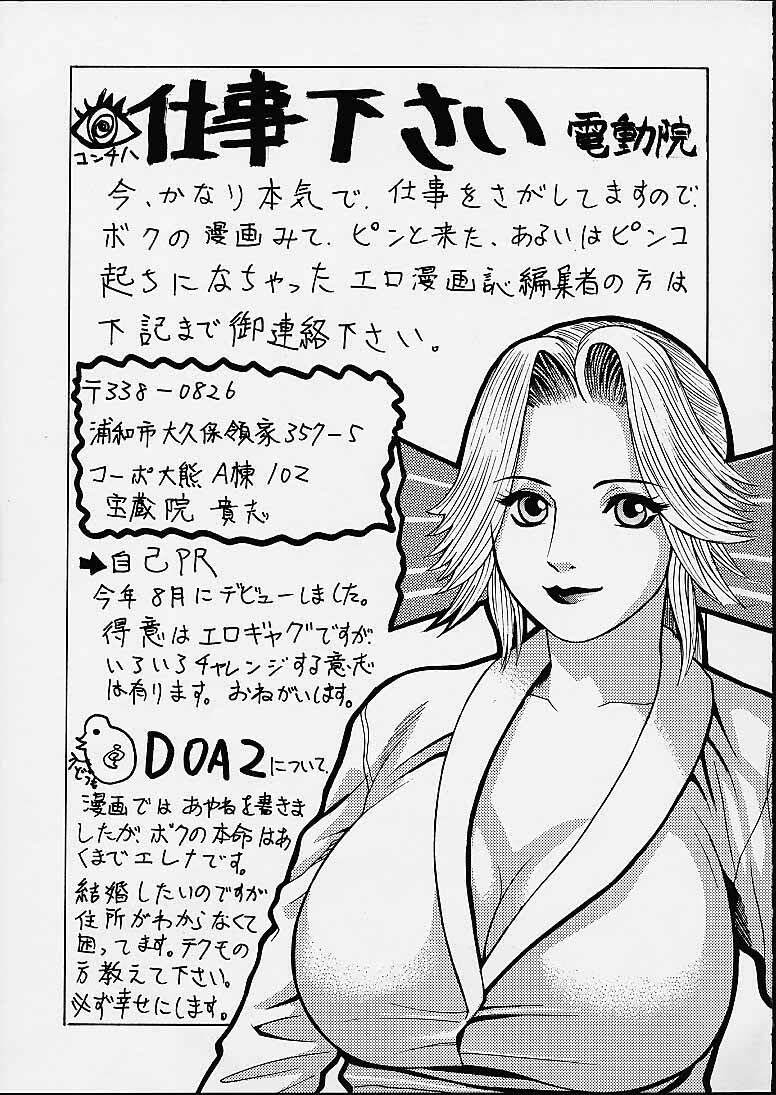 仕事下さい
電動院
コンチハ
今、かなり本気で、仕事をさがしてますので、
ボクの漫画みて、ピンと来た、あるいはピンコ
起ちになちゃった エロ漫画誌編集者の方は
下記まで御連絡下さい。
〒338-0826
浦和市大久保領家357-5
コーポ大熊 A棟 102
宝蔵院 貴志
➡自己PR
今年8月にデビューしました。
得意はエロギャグですが、
いろいろチャレンジする意志
は有ります。おねがいします。
DOA2について、
漫画では あやねを書きま
したが、ボクの本命はあ
くまでエレナです。
結婚したいのですが
住所がわからなくて
困ってます。テクモの
方教えて下さい。
必ず幸せにします。